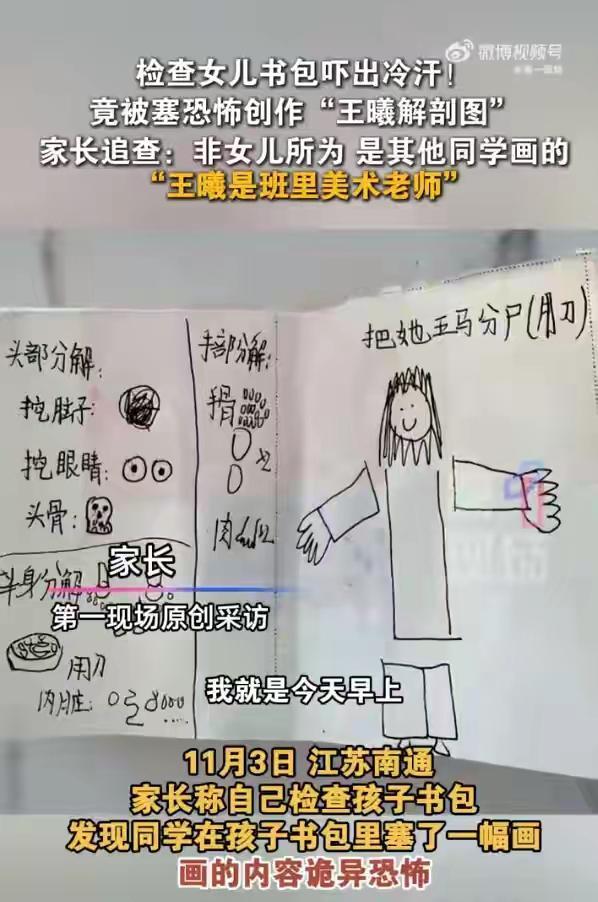 微博视频号
检查女儿书包吓出冷汗！
竟被塞恐怖创作“王曦解剖图”
家长追查：非女儿所为 是其他同学画的
“王曦是班里美术老师”
头部分解：
挖脑子：
挖眼睛：
头骨：
半身分解
用刀
内脏：
手部分解：
手骨
肉
把她五马分尸(用刀)
家长
第一现场原创采访
我就是今天早上
11月3日 江苏南通
家长称自己检查孩子书包
发现同学在孩子书包里塞了一幅画
画的内容诡异恐怖